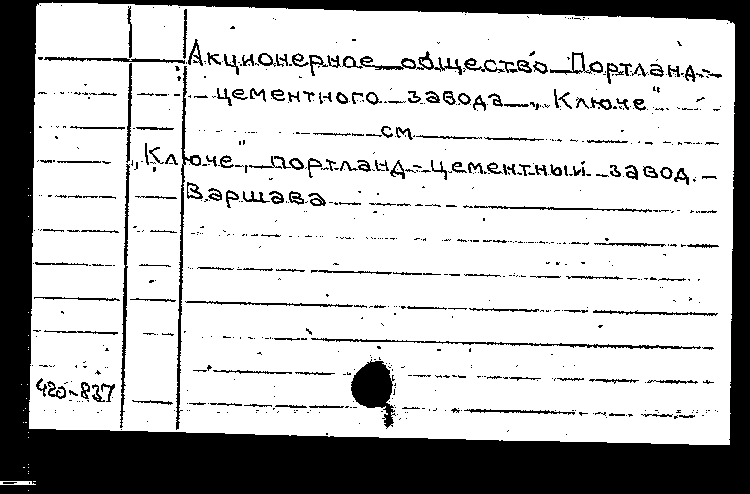 Акционерное общество Портланд-
цементного завода „Ключе"
см
„Ключе", портланд-цементный завод. -
Варшава
420-837